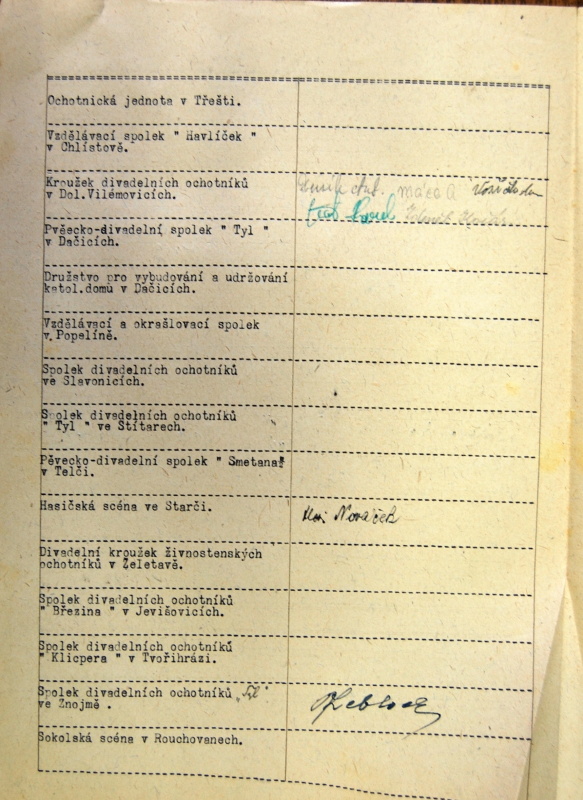 Ochotnická jednota v Třešti.
Vzdělávací spolek " Havlíček "
v Chlístově.
Kroužek divadelních ochotníků
v Dol.Vilémovicích.
Pvěecko-divadelní spolek " Tyl "
v Dačicích.
Družstvo pro vybudování a udržování
katol.domu v Dačicích.
Vzdělávací a okrašlovací spolek
v Popelíně.
Spolek divadelních ochotníků
ve Slavonicích.
Spolek divadelních ochotníků
" Tyl " ve Štítarech.
Pěvecko-divadelní spolek " Smetana"
v Telči.
Hasičská scéna ve Starči.
Nováček
Divadelní kroužek živnostenských
ochotníků v Želetavě.
Spolek divadelních ochotníků
" Březina " v Jevišovicích.
Spolek divadelních ochotníků
" Klicpera " v Tvořihrázi.
Spolek divadelních ochotníků „Tyl"
ve Znojmě .
Sokolská scéna v Rouchovanech.